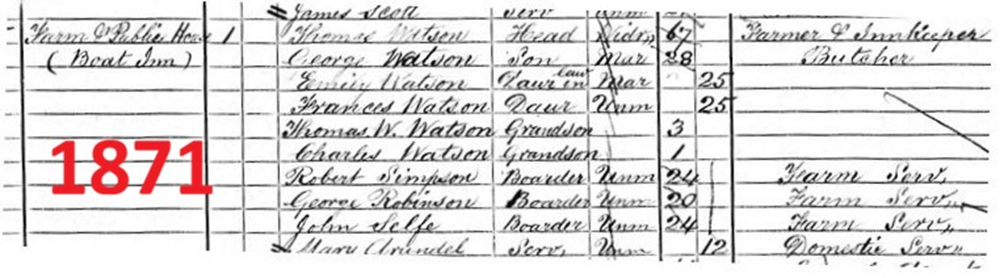 James Scott Serv Unm
Farm & Public House 1 Thomas Watson Head Widr 67 Farmer & Innkeeper
(Boat Inn) George Watson Son Mar 28 Butcher
Emily Watson Daur in law Mar 25
Frances Watson Daur Unm 25
Thomas W. Watson Grandson 3
Charles Watson Grandson 1
1871
Robert Simpson Boarder Unm 24 Farm Serv,,
George Robinson Boarder Unm 20 Farm Serv,,
John Selfe Boarder Unm 24 Farm Serv,,
Mary Arundel Serv, Unm 12 Domestic Serv,,